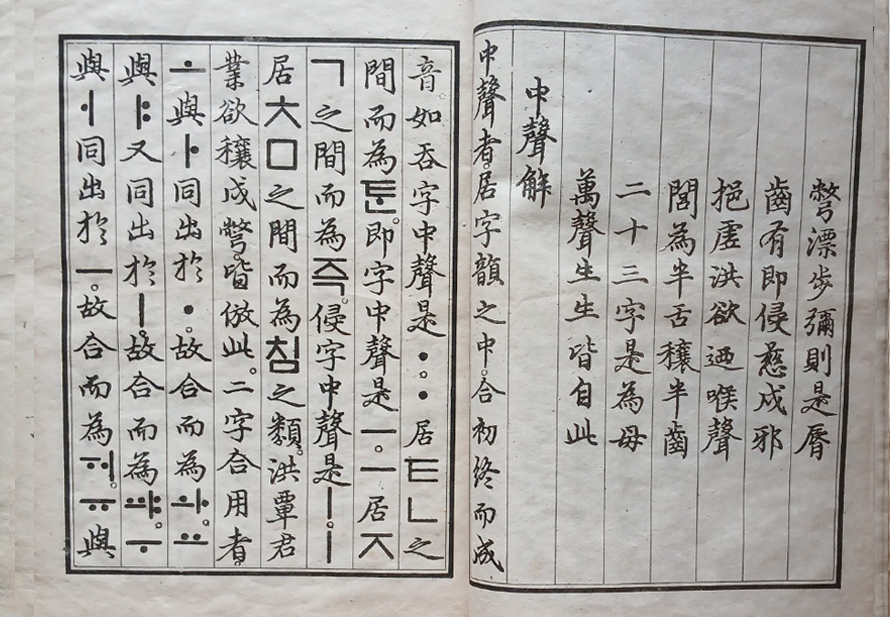 彆漂步彌則是脣
齒有即侵慈成邪
挹虗洪欲迺喉聲
閭為半舌穰半齒
二十三字是為母
萬聲生生皆自此
中聲解
中聲者。居字韻之中。合初終而成
音。如呑字中聲是ㆍ。ㆍ居ㅌㄴ之
間而為ᄐᆞᆫ。即字中聲是ㅡ。ㅡ居ㅈ
ㄱ之間而為즉。侵字中聲是ㅣ。ㅣ
居ㅊㅁ之間而為침之類。洪覃君
業欲穰戌彆。皆倣此。二字合用者。
ㅗ與ㅏ同出於ㆍ。故合而為ㅘ。ㅛ
與ㅑ又同出於ㅣ。故合而為ㆇ。ㅜ
與ㅓ同出於ㅡ。故合而為ㅝ。ㅠ與